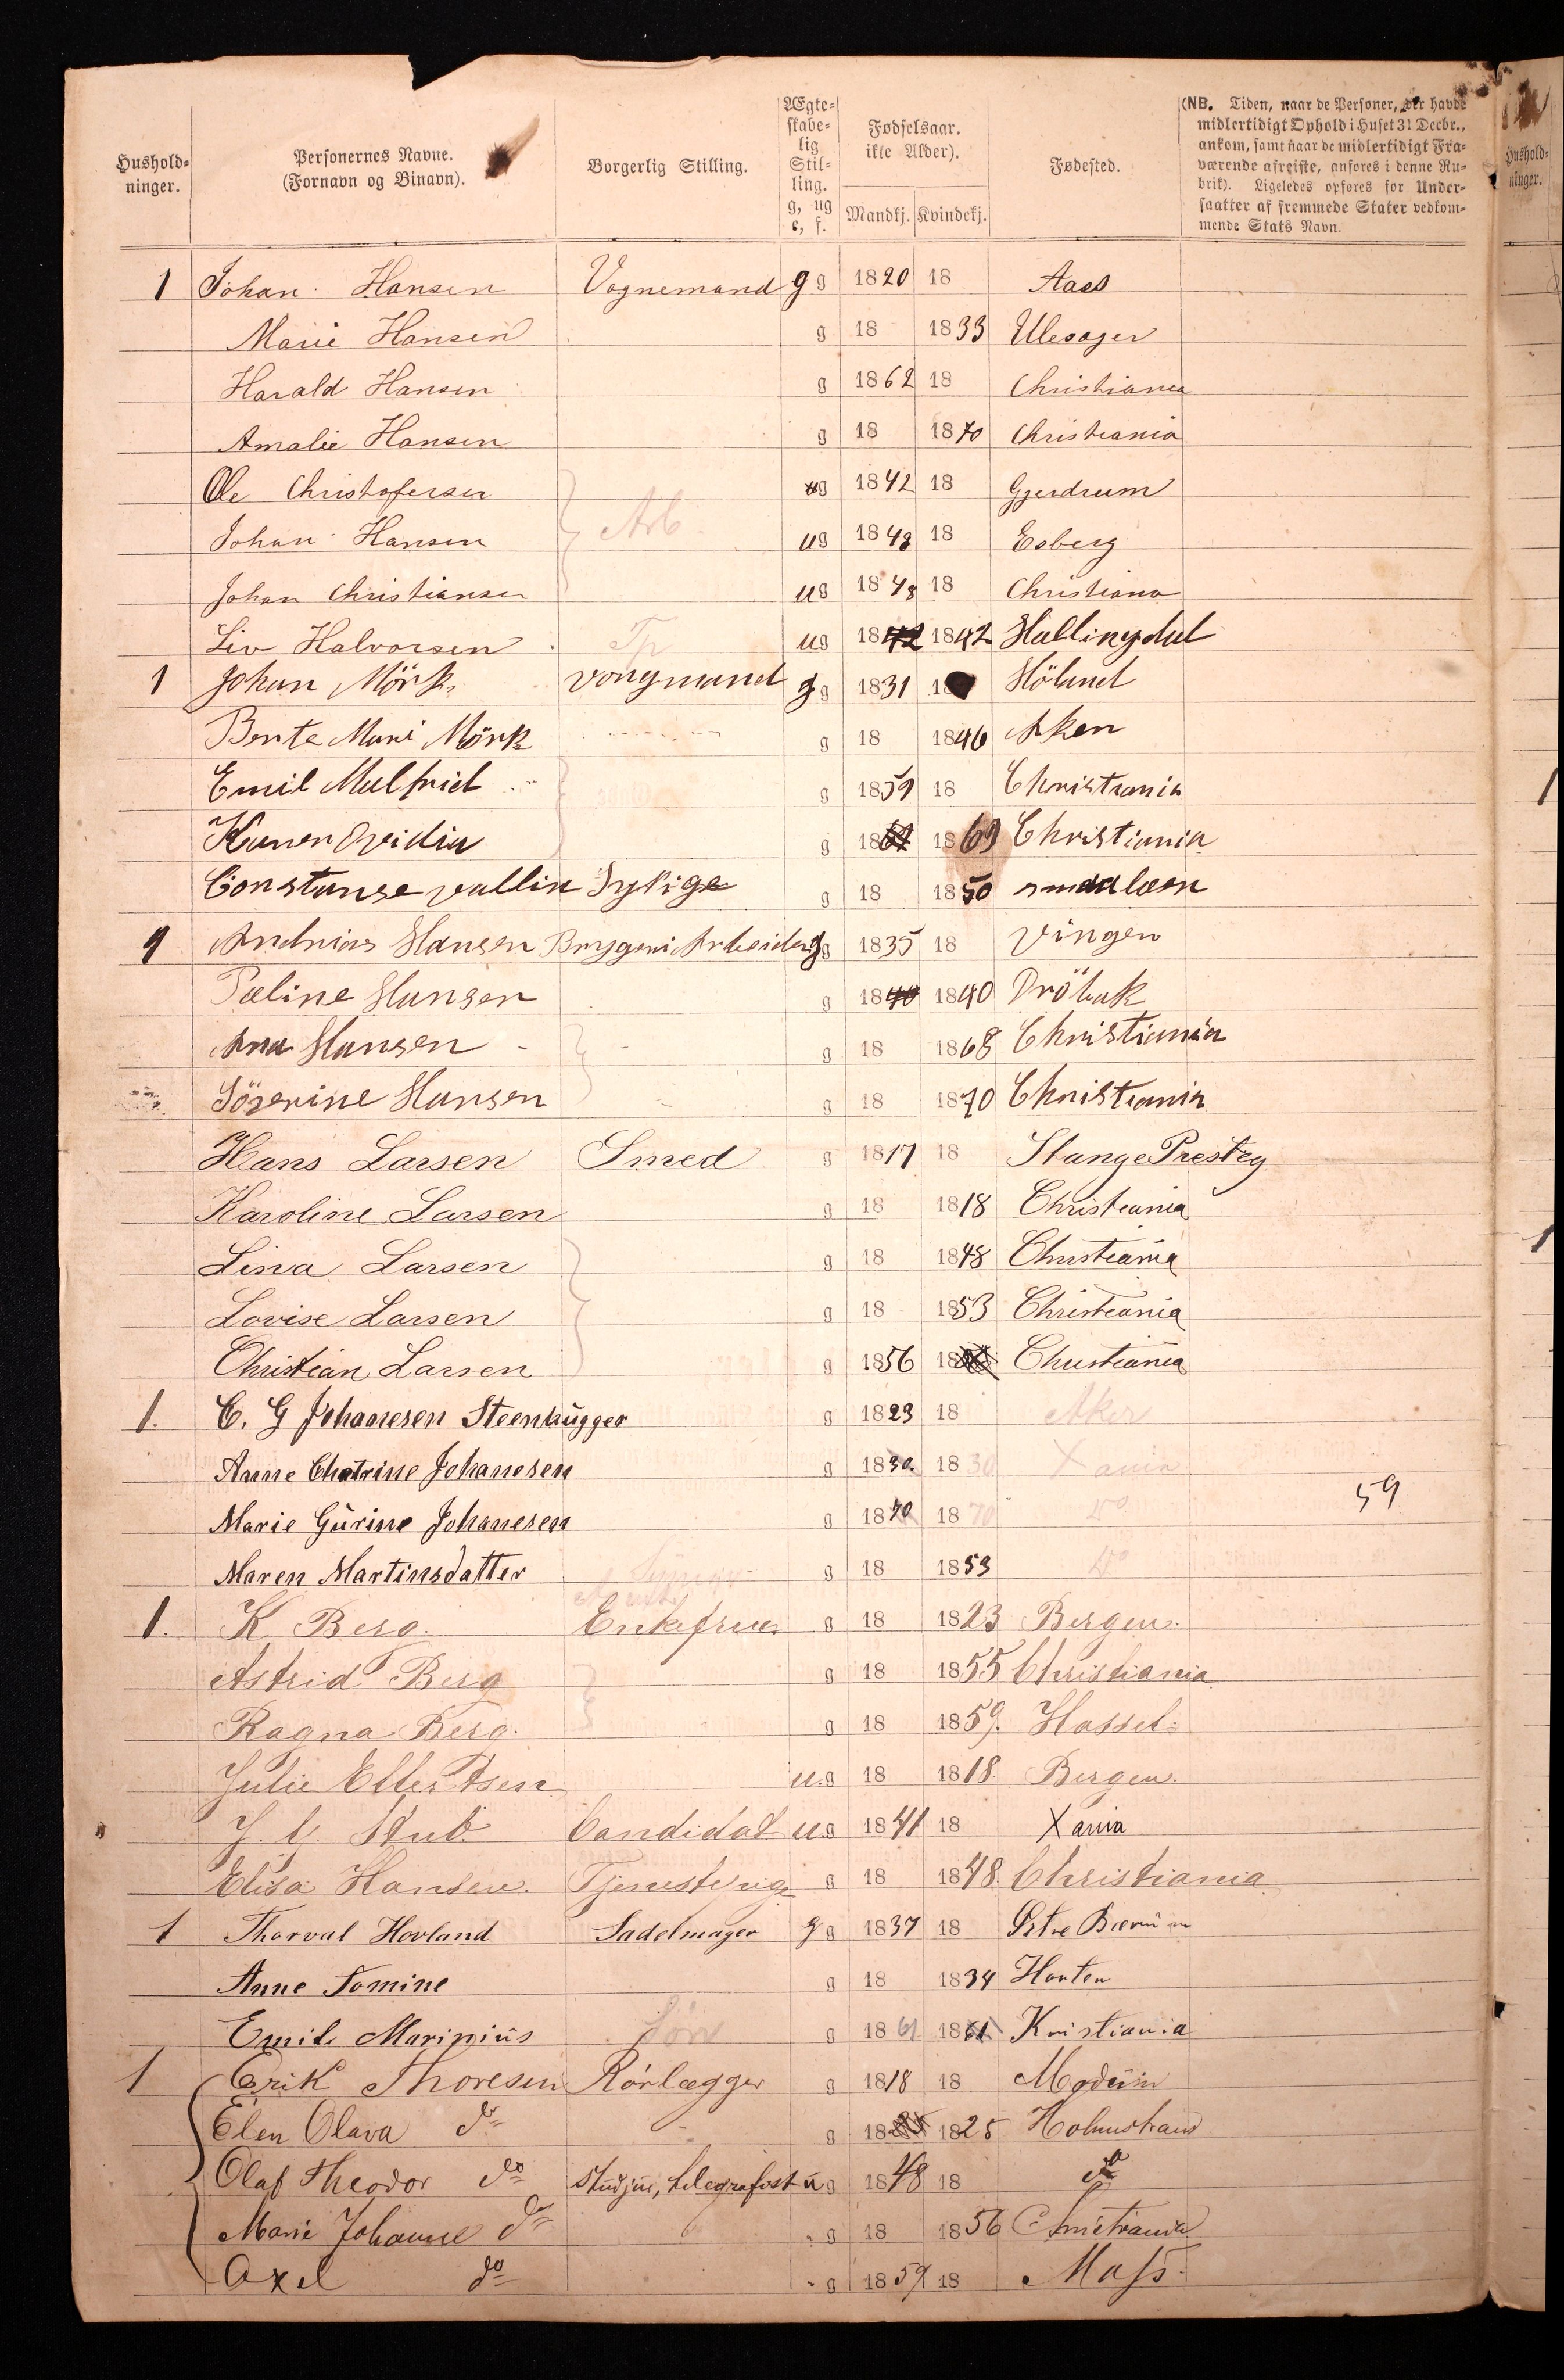 Hushold-
ninger.
Personernes Navne.
(Fornavn og Binavn).
Borgerlig Stilling.
Ægte-
skabe-
lig
Stil-
ling.
g, ug
e, f.
Fødselsaar.
ikke Alder).
Mandkj. Kvindekj.
Fødested.
(NB. Tiden, naar de Personer, der havde
midlertidigt Ophold i Huset 31 Decbr.,
ankom, samt naar de midlertidigt Fra-
værende afreiste, anføres i denne Ru-
brik). Ligeledes opføres for Under-
saatter af fremmede Stater vedkom-
mende Stats Navn.
Hushold-
ninger.
1 Johan Hansen Vognemand g g 1820 18 Aass
Marie Hansen g 18 1833 Ulesager
Harald Hansen g 1862 18 Christiania
Amalie Hansen g 18 1870 Christiania
Ole Christofersen ug 1842 18 Gjerdrum
Johan Hansen Arb ug 1848 18 Esberg
Johan Christiansen ug 1848 18 Christiana
Liv Halvorsen Tp ug 1842 1842 Hallingdal
1 Johan Mörk vongmand g g 1831 18 Höland
Bente Mari Mörk g 18 1846 Aker
Emil Malfrid g 1859 18 Christiania
Karen Ovidia g 18 1869 Christiania
Constanse vallin Sykige g 18 1850 smaalæn
1 Andrias Hansen Bryggeri Arbeider g g 1835 18 Vinger
Pæline Hansen g 1840 1840 Dröbak
Ana Hansen g 18 1868 Christiania
Söverine Hansen g 18 1870 Christiania
Hans Larsen Smed g 1817 18 Stange Presteg
Karoline Larsen g 18 1818 Christiania
Lina Larsen g 18 1848 Christiania
Lovise Larsen g 18 1853 Christiania
Christian Larsen g 1856 18 Christiania
1. C. G Johanesen Steenhugger g 1823 18 Aker
Anne Chatrine Johanesen g 1830 1830 Xania
Marie Gurine Johanesen g 1870 1870 Do 59
Maren Martinsdatter g 18 1853 Do
1. K Berg. Enkefrue g 18 1823 Bergen.
Astrid Berg g 18 1855 Christiania
Ragna Berg. g 18 1859. Hassel
Julie Ellertsen u.g 18 1818. Bergen.
Stub Candidat ug 1841 18 Xania
Elisa Hansen. Tjenestepige g 18 1848. Christiania
1 Thorval Hovland Sadelmager g g 1837 18 Østre Bærum
Anne Tomine g 18 1834 Horten
Emile Marinius Søn g 1861 1861 Kristiania
1 Erik Thoresen Rörlægger g 1818 18 Modum
Elen Olava do g 1825 1825 Holmestrand
Olaf Theodor do Studjus, telegrafist u g 1848 18 do
Marie Johanne do g 18 1856 Christiania
Axel do g 1859 18 Moss